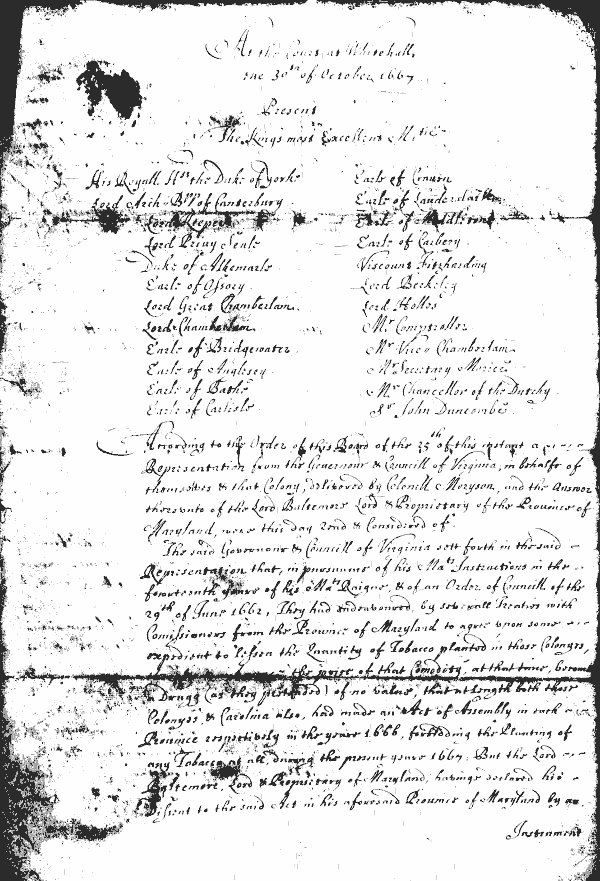 At the Court at Whitehall,
the 30th of October 1667
Present
The Kings most Excellent Matie
His Royall Hss the Duke of yorke
Lord Arch-Bpp of Canterbury
Lord Keeper
Lord Privy Seale
Duke of Albemarle
Earle of Ossory
Lord Great Chamberlain
Lord Chamberlain
Earle of Bridgewater
Earle of Anglesey
Earle of Bathe
Earle of Carlisle
Earle of Craven
Earle of Lauderdaill
Earle of Middleton
Earle of Carbery
Viscount Fitzharding
Lord Berkeley
Lord Holles
Mr Comptroller
Mr Vice Chamberlain
Mr Secretary Morice
Mr Chancellor of the Dutchy
Sr John Duncombe
According to the Order of this Board of the 25th of this instant a
Representation from the Governour & Councill of Virginia, in behalfe of
themselves & that Colony, delivered by Colonell Moryson, and the Answer
thereunto of the Lord Baltemore Lord & Proprietary of the Province of
Maryland, were this day read & Considered of.
The said Governour & Councill of Virginia sett forth in the said
Representation that, in pursuance of his Mats Instructions in the
fourteenth yeare of his Mats Raigne, & of an Order of Councill of the
29th of June 1662, They had endeavoured, by severall Treaties with
Comissioners from the Province of Maryland to agree upon some
expedient to lessen the Quantity of Tobacco planted in those Colonyes,
the price of that Comodity, at that time, become
a Drugg (as they pretended) of no value, that at length both those
Colonyes, & Carolina also, had made an Act of Assembly in each
Province respectively in the yeare 1666, forbidding the Planting of
any Tobacco at all, during the present yeare 1667. But the Lord
Baltemore, Lord & Proprietary of Maryland, having declared his
Disent to the said Act in his aforesaid Province of Maryland by an
Instrument